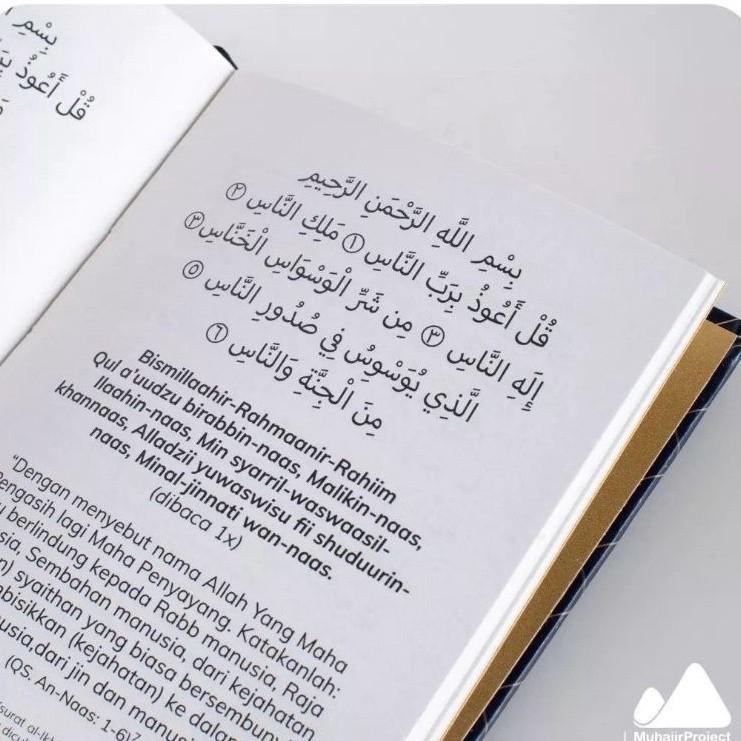 بِسْمِ
قُلْ أَعُوذُ
بِسْمِ اللَّهِ الرَّحْمَنِ الرَّحِيمِ
قُلْ أَعُوذُ بِرَبِّ النَّاسِ ۝١ مَلِكِ النَّاسِ ۝٢
إِلَهِ النَّاسِ ۝٣ مِن شَرِّ الْوَسْوَاسِ الْخَنَّاسِ ۝٣
الَّذِي يُوَسْوِسُ فِي صُدُورِ النَّاسِ ۝٥
مِنَ الْجِنَّةِ وَالنَّاسِ ۝٦
Bismillaahir-Rahmaanir-Rahiim
Qul a'uudzu birabbin-naas, Malikin-naas,
Ilaahin-naas, Min syarril-waswaasil-
khannaas, Alladzii yuwaswisu fii shuduurin-
naas, Minal-jinnati wan-naas.
(dibaca 1x)
"Dengan menyebut nama Allah Yang Maha
Pengasih lagi Maha Penyayang. Katakanlah:
berlindung kepada Rabb manusia, Raja
Sembahan manusia, dari kejahatan
syaithan yang biasa bersembunyi
(kejahatan) ke dalam
dari jin dan manusia
(QS. An-Naas: 1-6)
MuhajirProject